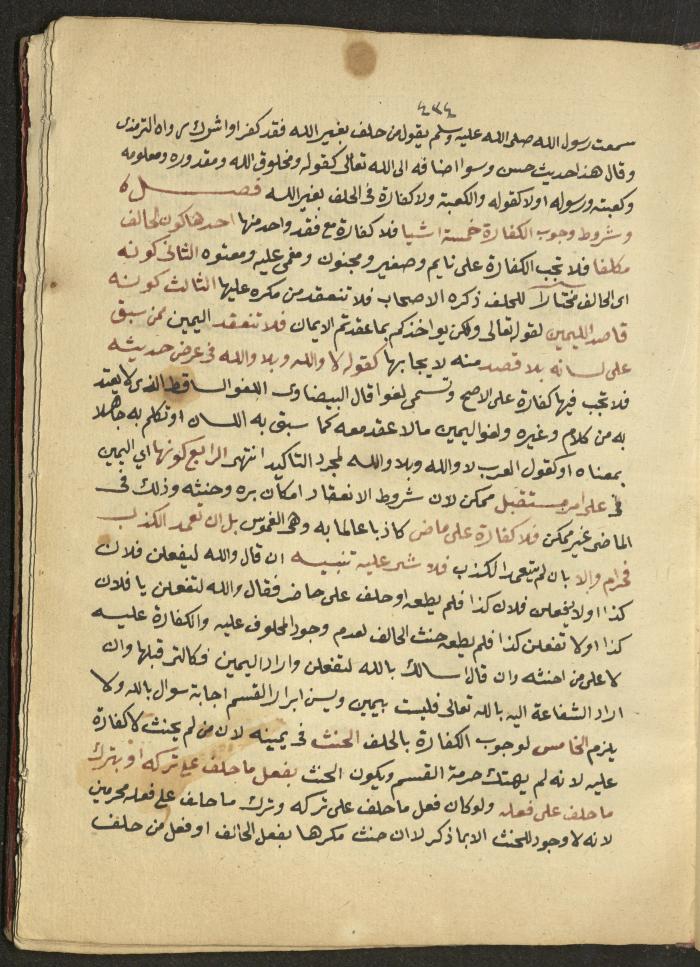 ٤٣٤
سمعت رسول الله صلى الله عليه وسلم يقول من حلف بغير الله فقد كفر او اشرك رواه الترمذى
وقال هذا حديث حسن وسوا اضافه الى الله تعالى كقوله ومخلوق الله ومقدوره ومعلومه
وكعبته ورسوله او لا كقوله والكعبة ولا كفارة فى الحلف بغير الله فصل
وشروط وجوب الكفارة خمسة اشيا فلا كفارة مع فقد واحد منها احدها كون الحالف
مكلفا فلا تجب الكفارة على نايم وصغير ومجنون ومغمى عليه ومعتوه الثانى كونه
اى الحالف مختارا للحلف ذكره الاصحاب فلا تنعقد من مكره عليها الثالث كونه
قاصد لليمين لقوله تعالى ولكن يواخذكم بما عقدتم الايمان فلا تنعقد اليمين ممن سبق
على لسانه بلا قصد منه لايجابها كقوله لا والله وبلا والله فى عرض حديثه
فلا تجب فيها كفارة على الاصح وتسمى لغوا قال البيضاوى اللغو الساقط الذى لا يعتد
به من كلام وغيره ولغو اليمين مالا عقد معه كما سبق به اللسان او تكلم به جاهلا
بمعناه او كقول العرب لا والله وبلا والله لمجرد التاكيد انتهى الرابع كونها اي اليمين
على امر مستقبل ممكن لان شروط الانعقاد امكان بره وحنثه وذلك فى
الماضى غير ممكن فلا كفارة على ماض كاذبا عالما به وهى الغموس بل ان تعمد الكذب
فحرام والا بان لم يتعمد الكذب فلا شى عليه تنبيه ان قال والله ليفعلن فلان
كذا او لا يفعلن فلان كذا فلم يطعه او حلف على حاضر فقال والله لتفعلن يا فلان
كذا او لا تفعلن كذا فلم يطعه حنث الحالف لعدم وجود المحلوف عليه والكفارة عليه
لا على من احنثه وان قال اسالك بالله لتفعلن واراد اليمين فكالتى قبلها وان
اراد الشفاعة اليه بالله تعالى فليست بيمين ويسن ابرار القسم اجابة سوال بالله ولا
يلزم الخامس لوجوب الكفارة بالحلف الحنث فى يمينه لان من لم يحنث لا كفارة
عليه لانه لم يهتك حرمة القسم ويكون الحنث بفعل ما حلف على تركه او بترك
ما حلف على فعله ولو كان فعل ما حلف على تركه وترك ما حلف على فعله محرمين
لانه لا وجود للحنث الا بما ذكر لا ان حنث مكرها بفعل الحالف او فعل من حلف